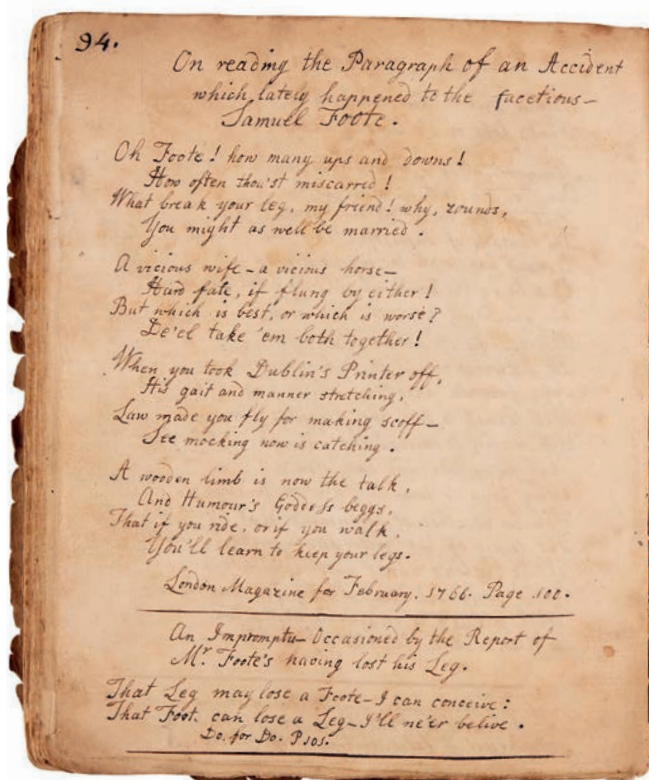 94.
On reading the Paragraph of an Accident
which lately happened to the facetious—
Samuel Foote.
Oh Foote! how many ups and downs!
How often thou'st miscarred!
What break your leg, my friend! why, zounds,
You might as well be married.
A vicious wife – a vicious horse –
Hard fate, if flung by either!
But which is best, or which is worse?
De'el take 'em both together!
When you took Dublin's Printer off,
His gait and manner stretching,
Law made you fly for making scoff –
See mocking now is catching.
A wooden limb is now the talk,
And Humour's Goddess beggs,
That if you ride, or if you walk,
You'll learn to keep your legs.
London Magazine for February, 1766. Page 100.
An Impromptu – Occasioned by the Report of
Mr. Foote's having lost his Leg.
That Leg may lose a Foote – I can conceive:
That Foot. can lose a Leg – I'll ne'er belive.
Do. for Do. P101.